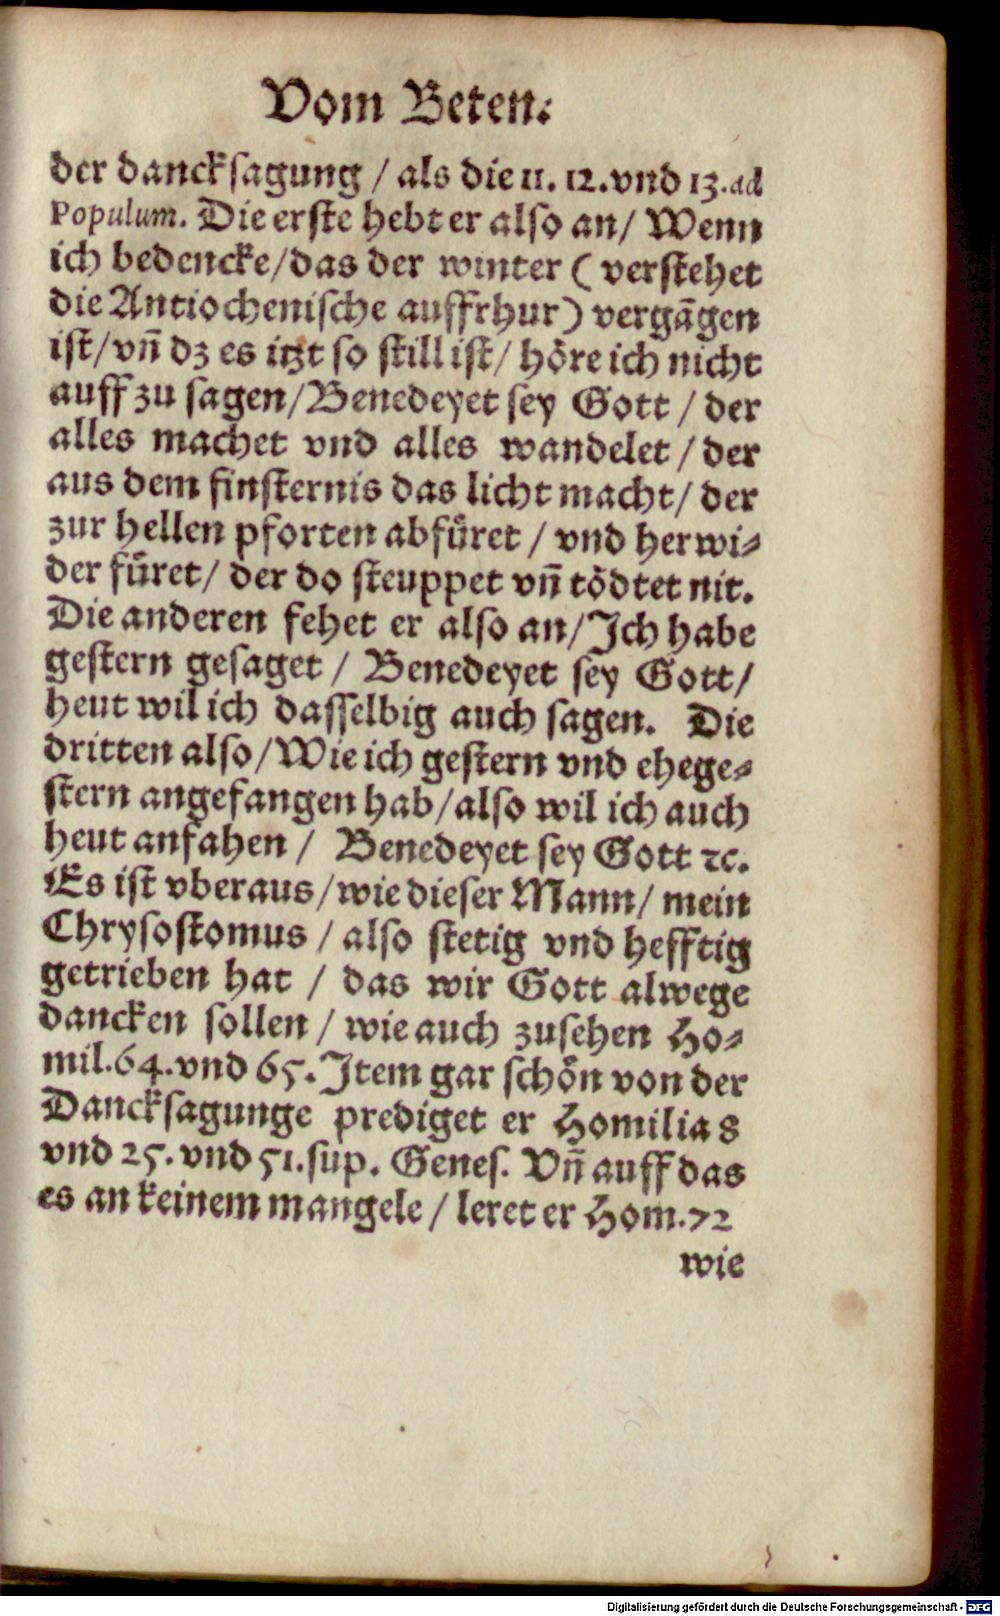 Vom Beten.
der dancksagung / als die 11. 12. vnd 13. ad
Populum. Die erste hebt er also an / Wenn
ich bedencke / das der winter ( verstehet
die Antiochenische auffrhur ) vergāgen
ist / vñ dz es itzt so still ist / höre ich nicht
auff zu sagen / Benedeyet sey Gott / der
alles machet vnd alles wandelet / der
aus dem finsternis das licht macht / der
zur hellen pforten abfüret / vnd herwi-
der füret / der do steuppet vñ tödtet nit.
Die anderen fehet er also an / Ich habe
gestern gesaget / Benedeyet sey Gott /
heut wil ich dasselbig auch sagen. Die
dritten also / Wie ich gestern vnd ehege-
stern angefangen hab / also wil ich auch
heut anfahen / Benedeyet sey Gott ꝛc.
Es ist vberaus / wie dieser Mann / mein
Chrysostomus / also stetig vnd hefftig
getrieben hat / das wir Gott alwege
dancken sollen / wie auch zusehen Ho-
mil. 64. vnd 65. Item gar schön von der
Dancksagunge prediget er Homilia 8
vnd 25. vnd 51. sup. Genes. Vñ auff das
es an keinem mangele / leret er Hom. 72
wie
Digitalisierung gefördert durch die Deutsche Forschungsgemeinschaft - DFG